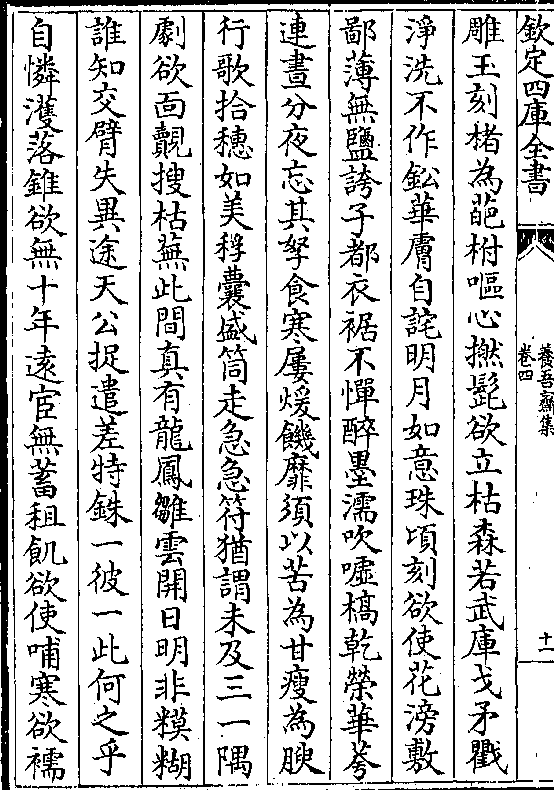 欽定四庫全書
養吾齋集
卷四
十一
雕玉刻楮為葩柎嘔心撚髭欲立枯森若武庫戈矛戳
淨洗不作鈆華膚自詫明月如意珠頃刻欲使花滂敷
鄙薄無鹽誇子都衣裾不憚醉墨濡吹嘘槁乾榮華荂
連晝分夜忘其孥食寒屢煖饑靡須以苦為甘瘦為腴
行歌拾穗如美稃囊盛筒走急急符猶謂未及三一隅
劇欲面覿搜枯蕪此間真有龍鳳雛雲開日明非糢糊
誰知交臂失異途天公捉遣差特銖一彼一此何之乎
自憐濩落錐欲無十年遠宦無蓄租飢欲使哺寒欲襦